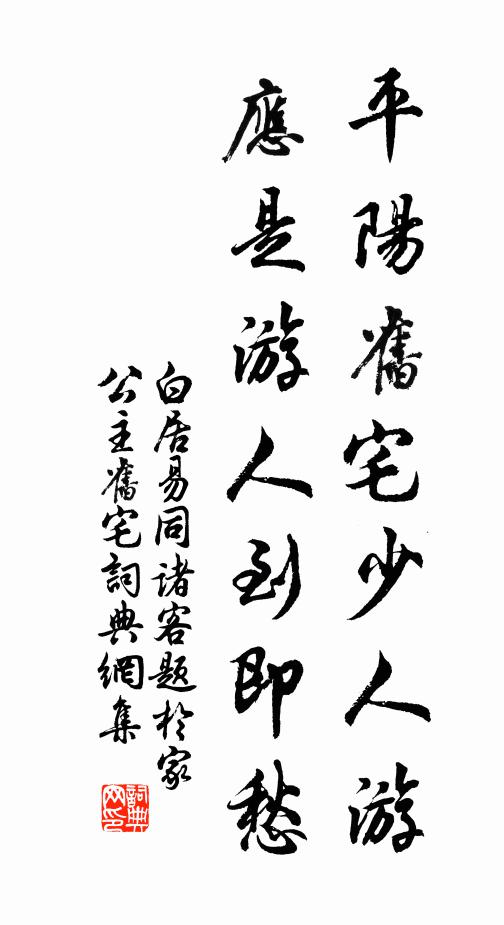 平陽舊宅少人游
應是游人到即愁
白居易同諸客題於家
公主舊宅詞典網集
詞典
网印